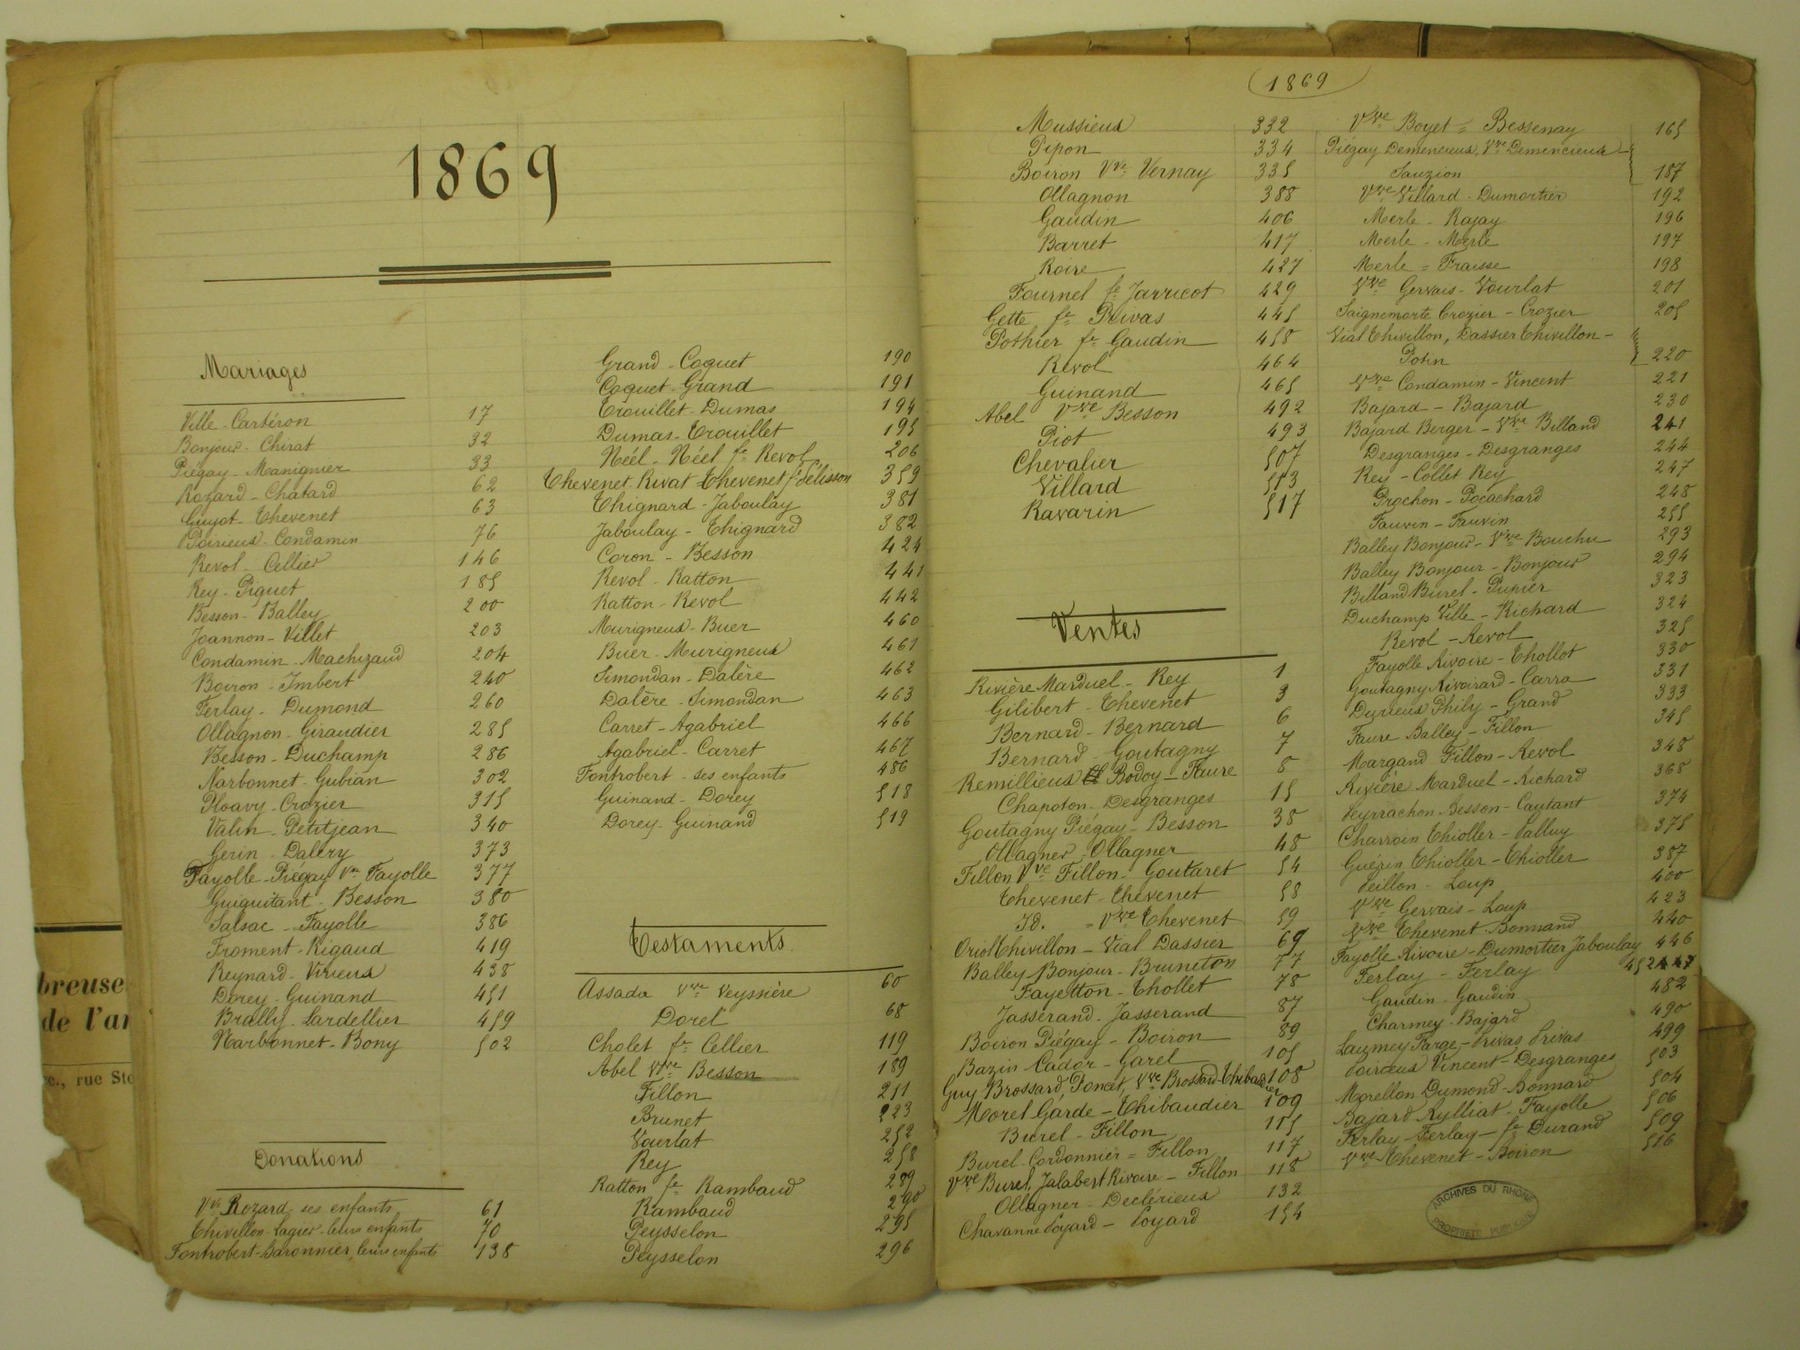 1869
Mariages
Ville - Cartéron 17
Bonjour - Chirat 32
Piégay - Manignier 33
Rozard - Chatard 62
Guyot - Thevenet 63
Poirieux - Condamin 76
Revol - Cellier 146
Rey - Piguet 185
Besson - Balley 200
Joannon - Villet 203
Condamin - Machizaud 204
Boiron - Imbert 240
Ferlay - Dumond 260
Ollagnon - Giraudier 285
Besson - Duchamp 286
Narbonnet - Gubian 302
Ploavy - Crozier 315
Valin - Petitjean 340
Gerin - Daléry 373
Fayolle - Piégay Vve Fayolle 377
Guiguitant - Besson 380
Salsac - Fayolle 386
Froment - Rigaud 419
Reynard - Virieux 438
Dorey - Guinand 451
Brally - Cardellier 459
Narbonnet - Bony 502
Donations
Vve Rozard ses enfants 61
Chivillon - Lagier - leurs enfants 70
Fontrobert - Baronnier, leurs enfants 138
Grand - Coquet 190
Coquet - Grand 191
Trouillet - Dumas 194
Dumas - Trouillet 195
Néel - Néel fe Revol 206
Thevenet - Rivat Thevenet fe Pélisson 359
Thignard - Jaboulay 381
Jaboulay - Thignard 382
Coron - Besson 424
Revol - Ratton 441
Ratton - Revol 442
Murigneux - Buer 460
Buer - Murigneux 461
Simondan - Dalère 462
Dalère - Simondan 463
Carret - Agabriel 466
Agabriel - Carret 467
Fontrobert - ses enfants 486
Guinand - Dorey 518
Dorey - Guinand 519
Testaments
Assada Vve Veyssière 60
Dorel 68
Cholet fe Cellier 119
Abel Vve Besson 189
Fillon 211
Brunet 223
Vourlat 252
Rey 258
Ratton fe Rambaud 289
Rambaud 290
Peysselon 295
Peysselon 296
1869
Mussieux 332
Pipon 334
Boiron Vve Vernay 335
Ollagnon 388
Gaudin 406
Barret 417
Roire 427
Fournel fe Jarricot 429
Gette fe Privas 445
Pothier fe Gaudin 458
Revol 464
Guinand 465
Abel Vve Besson 492
Piot 493
Chevalier 507
Villard 513
Ravarin 517
Ventes
Rivière Marduel - Rey 1
Gilibert - Thevenet 3
Bernard - Bernard 6
Bernard - Goutagny 7
Remillieux et Bodoy - Faure 8
Chapoton - Desgranges 15
Goutagny Piégay - Besson 38
Ollagner - Ollagner 48
Fillon Vve Fillon - Goutaret 54
Thevenet - Thevenet 58
Id. = Vve Thevenet 59
Oriol Chivillon - Vial Dassier 69
Balley Bonjour - Bruneton 77
Fayetton - Thollet 78
Jasserand - Jasserand 87
Boiron Piégay - Boiron 89
Bazin Cador - Garel 105
Guy Brossard, Poncet, Vve Brossard - Thibaudier 108
Morel Garde - Thibaudier 109
Burel - Fillon 115
Burel - Cordonnier = Fillon 117
Vve Burel, Jalabert Rivoire - Fillon 118
Ollagner - Declérieux 132
Chavanne Loyard - Loyard 154
Vve Boyet = Bessenay 165
Piégay Demencieux, Vve Demencieux -
Sauzion 187
Vve Villard - Dumortier 192
Merle - Rajay 196
Merle - Merle 197
Merle = Fraisse 198
Vve Gervais - Vourlat 201
Saignemorte Crozier - Crozier 205
Vial Chivillon, Dassier Chivillon -
Potin 220
Vve Condamin - Vincent 221
Bajard - Bajard 230
Bajard Berger - Vve Billand 241
Desgranges - Desgranges 244
Rey - Collet Rey 247
Prochon - Pocachard 248
Fauvin - Fauvin 255
Balley Bonjour - Vve Bouchu 293
Balley Bonjour - Bonjour 294
Billand Burel - Pupier 323
Duchamp Ville - Richard 324
Revol - Revol 325
Fayolle Rivoire - Thollot 330
Goutagny Rivoirard - Carra 331
Dyrieux Phily - Grand 333
Faure Balley - Fillon 345
Margand Fillon - Revol 348
Rivière Marduel - Richard 368
Veyrrachon Besson - Cautant 374
Charroin Thioller - Valluy 375
Guérin Thioller - Thioller 387
Veillon - Loup 400
Vve Gervais - Loup 423
Vve Thevenet Bonnand 440
Fayolle Rivoire - Dumortier Jaboulay 446
Ferlay - Ferlay 447
Gaudin - Gaudin 482
Charmey - Bajard 490
Laumey Farge - Privas Privas 499
Poirieux Vincent - Desgranges 503
Morellon Dumond - Bonnard 504
Bajard Rylliat - Fayolle 506
Ferlay - Ferlay - fe Durand 509
Vve Thevenet - Boiron 516
ARCHIVES DU RHÔNE
PROPRIÉTÉ PUBLIQUE
breuse
de l'ar
rue Ste